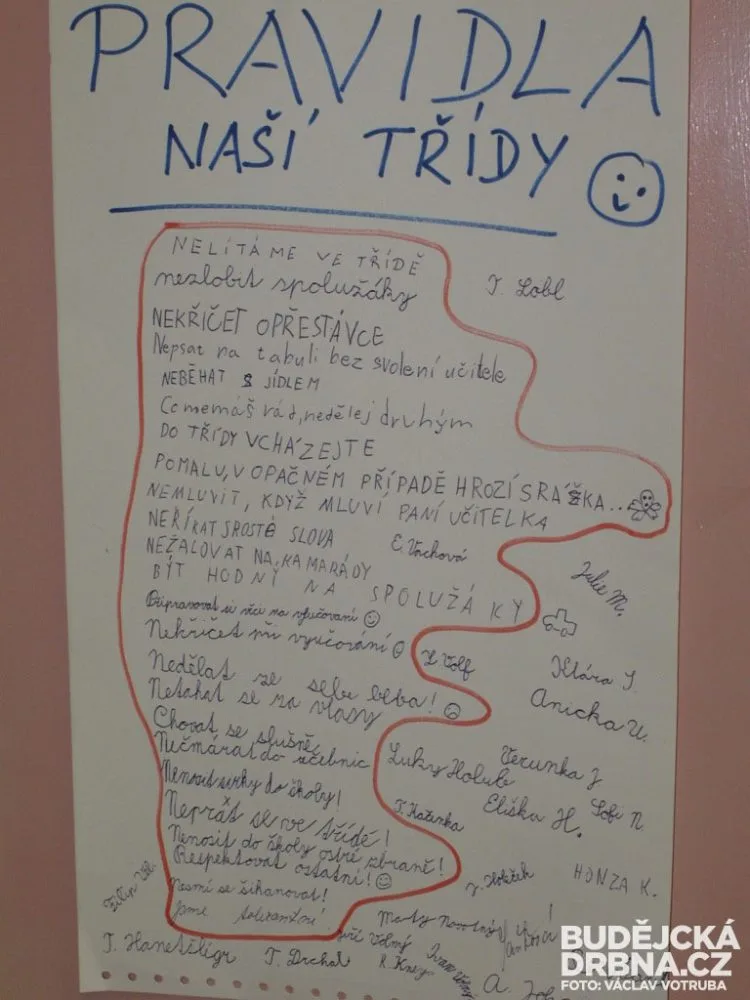 PRAVIDLA
NAŠÍ TŘÍDY
NELÍTÁME VE TŘÍDĚ
nezlobit spolužáky
T. Lobl
NEKŘIČET OPŘESTÁVCE
Nepsat na tabuli bez svolení učitele
NEBĚHAT S JÍDLEM
Co nemáš rád, nedělej druhým
DO TŘÍDY VCHÁZEJTE
POMALU, V OPAČNÉM PŘÍPADĚ HROZÍ SRÁŽKA...
NEMLUVIT, KDYŽ MLUVÍ PANÍ UČITELKA
NEŘÍKAT SPROSTÉ SLOVA
E. Vachová
NEŽALOVAT NA KAMARÁDY
BÝT HODNÝ NA SPOLUŽÁKY
Julie M.
Připravovat si věci na vyučovaní
Nekřičet při vyučování
L. Volf
Klára J.
Nedělat ze sebe beba!
Netahat se za vlasy
Anička U.
Chovat se slušně
Nečmárat do učebnic
Luky Holub
Verunka J
Nenosit sirky do školy!
Eliška H.
Sofi N.
Neprát se ve třídě!
T. Kaženka
Nenosit do školy ostré zbraně!
Respektovat ostatní!
HONZA K.
Nesmí se šikanovat!
Jsme tolerantní
Maty Novotný
Jiří Volný
T. Drchal
BUDĚJCKÁ
DRBNA.CZ
FOTO: VÁCLAV VOTRUBA